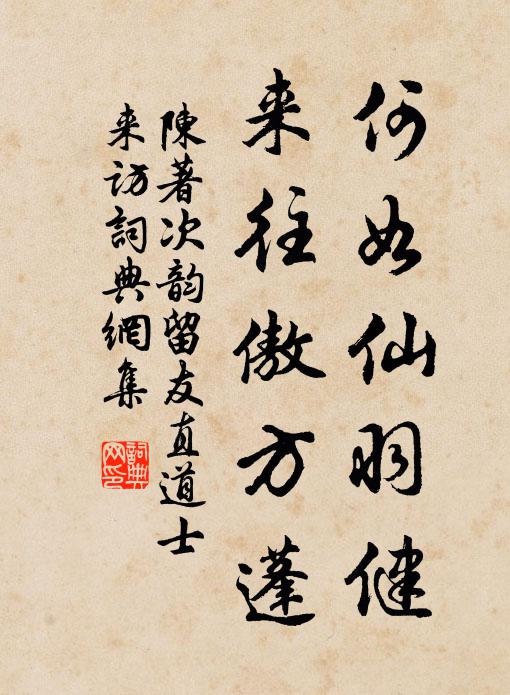 何如仙羽健
来往傲方蓬
陳著次韵留友直道士
来访詞典網集
詞典网印